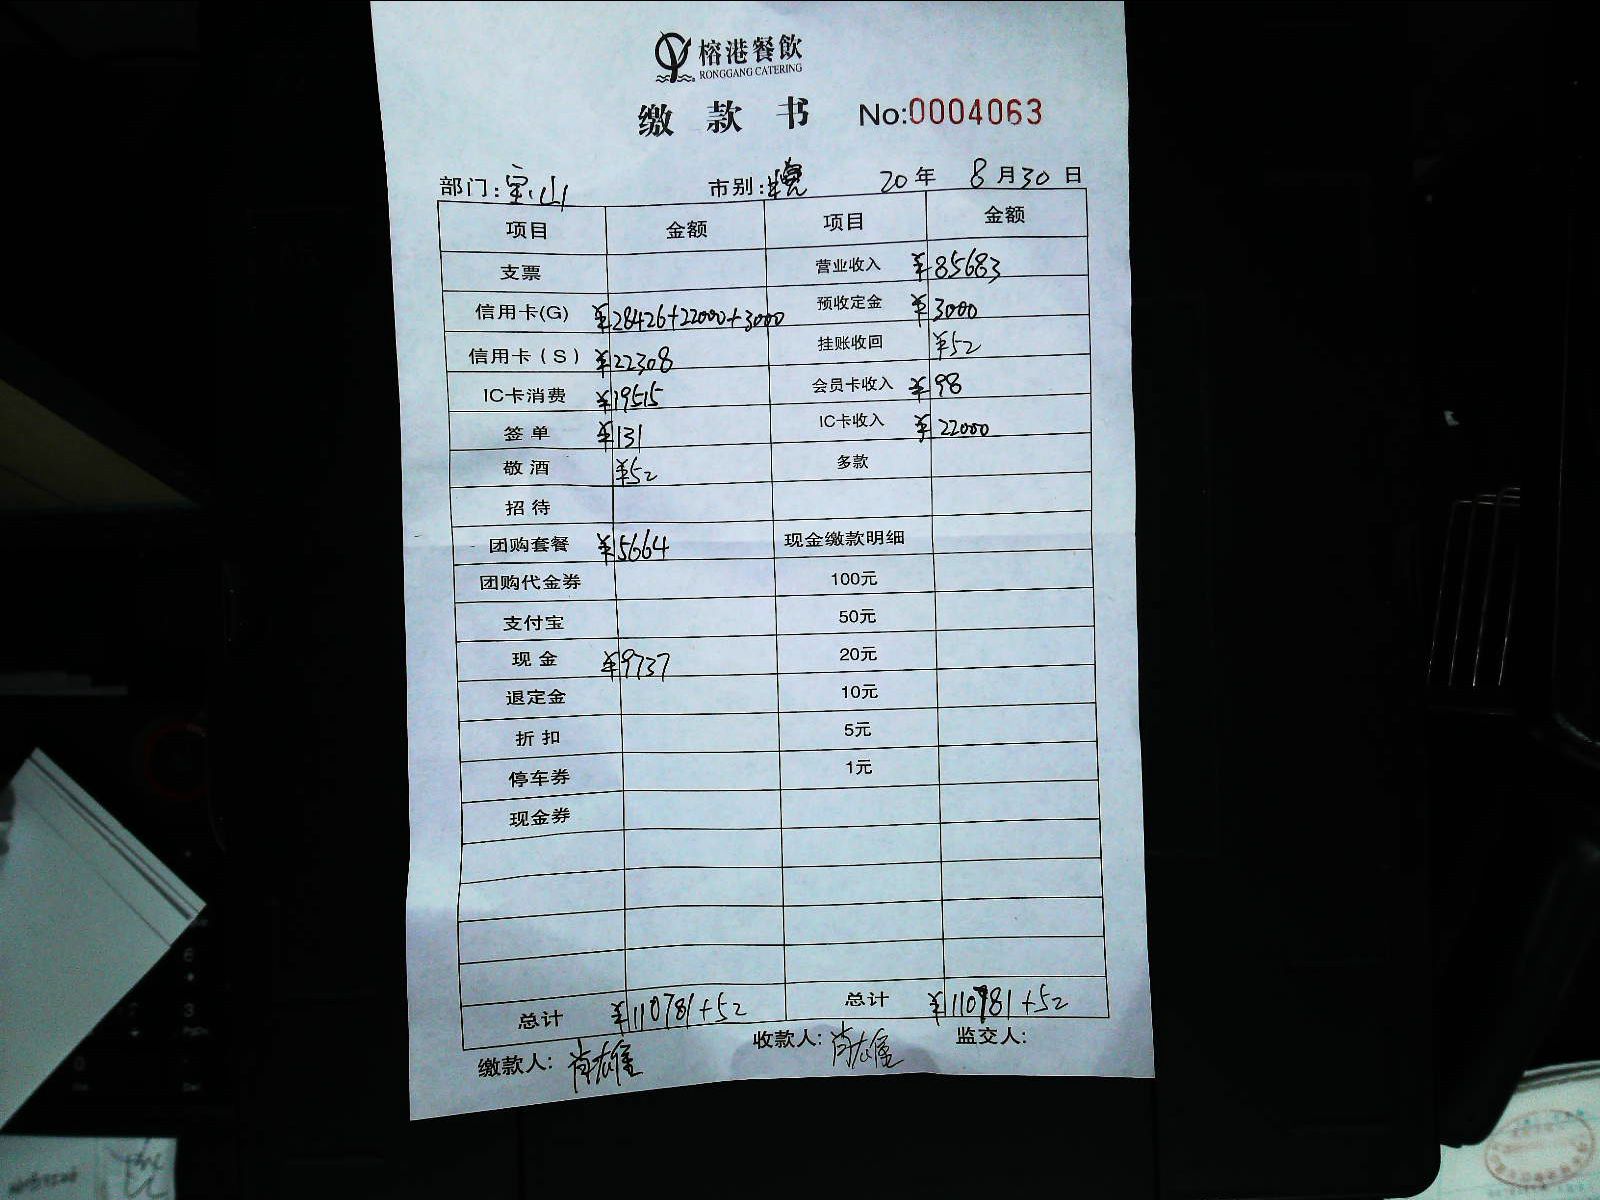 榕港餐飲
RONGGANG CATERING
缴 款 书 No:0004063
部门:宝山 市别:晚 20年 8月30日
项目 金额 项目 金额
支票 营业收入 ¥85683
信用卡(G) ¥28426+22000+3000 预收定金 ¥3000
信用卡(S) ¥22308 挂账收回 ¥52
IC卡消费 ¥19515 会员卡收入 ¥98
签单 ¥131 IC卡收入 ¥22000
敬酒 ¥52 多款
招待
团购套餐 ¥5664 现金缴款明细
团购代金券 100元
支付宝 50元
现金 ¥9737 20元
退定金 10元
折扣 5元
停车券 1元
现金券
总计 ¥110781+52 总计 ¥110781+52
缴款人: 肖雄 收款人: 肖雄 监交人: